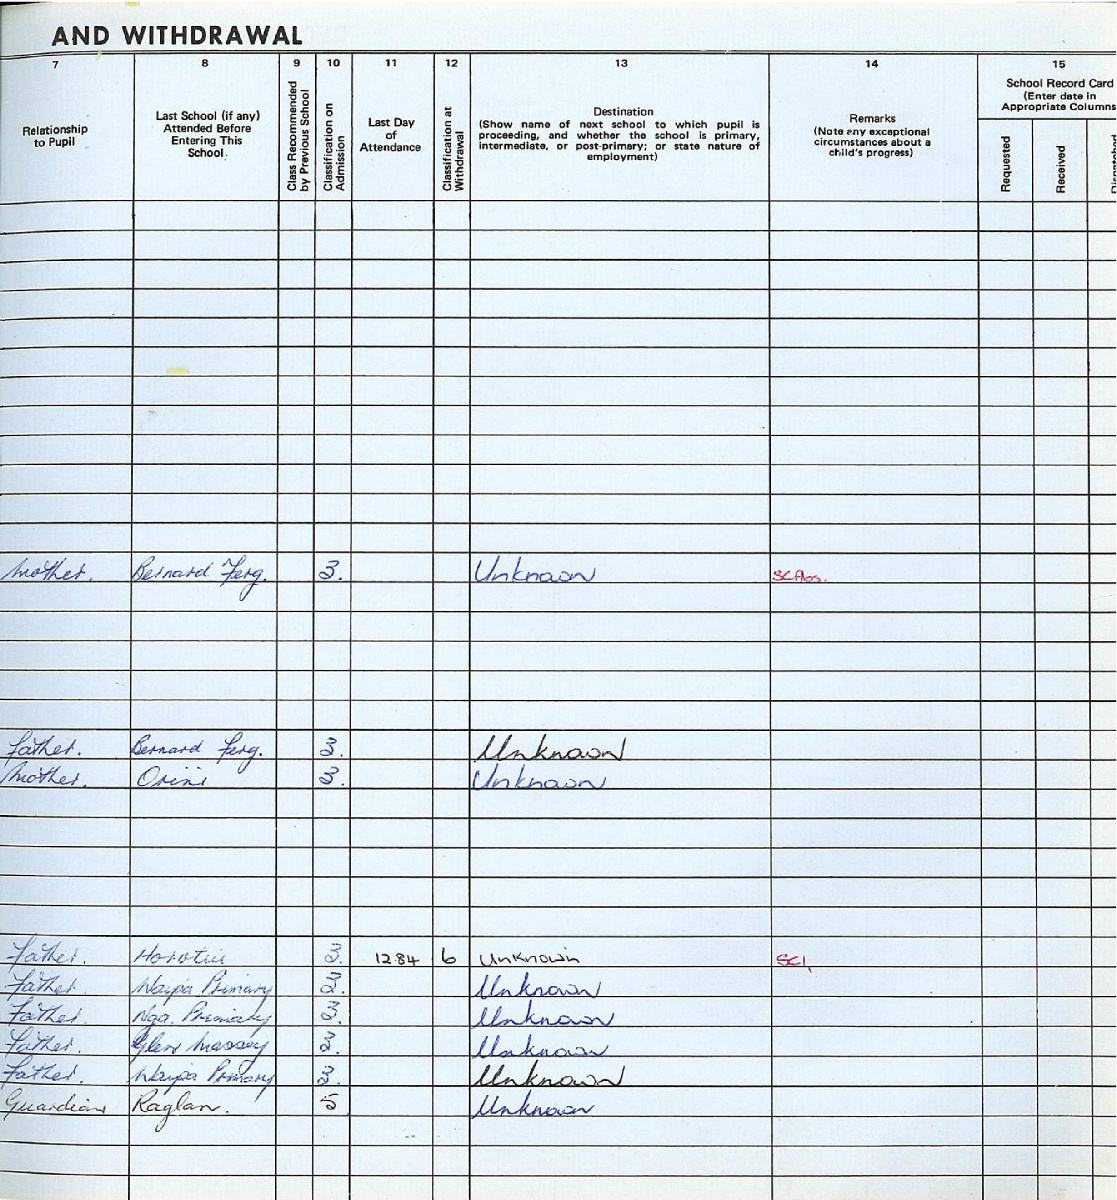 AND WITHDRAWAL
7 8 9 10 11 12 13 14 15
Relationship
to Pupil
Last School (if any)
Attended Before
Entering This
School
Class Recommended
by Previous School
Classification on
Admission
Last Day
of
Attendance
Classification at
Withdrawal
Destination
(Show name of next school to which pupil is
proceeding, and whether the school is primary,
intermediate, or post-primary; or state nature of
employment)
Remarks
(Note any exceptional
circumstances about a
child's progress)
School Record Card
(Enter date in
Appropriate Columns
Requested
Received
Dispatched
Mother. Bernard Ferg. 3. Unknown
Father. Bernard Ferg. 3. Unknown
Mother. Orini 3. Unknown
Father. Horotiu 3. 12.84 6 Unknown SC1
Father. Waipa Primary 3. Unknown
Father. Nga. Primary 3. Unknown
Father. Glen Massey 3. Unknown
Father. Waipa Primary 3. Unknown
Guardian Raglan. 5 Unknown